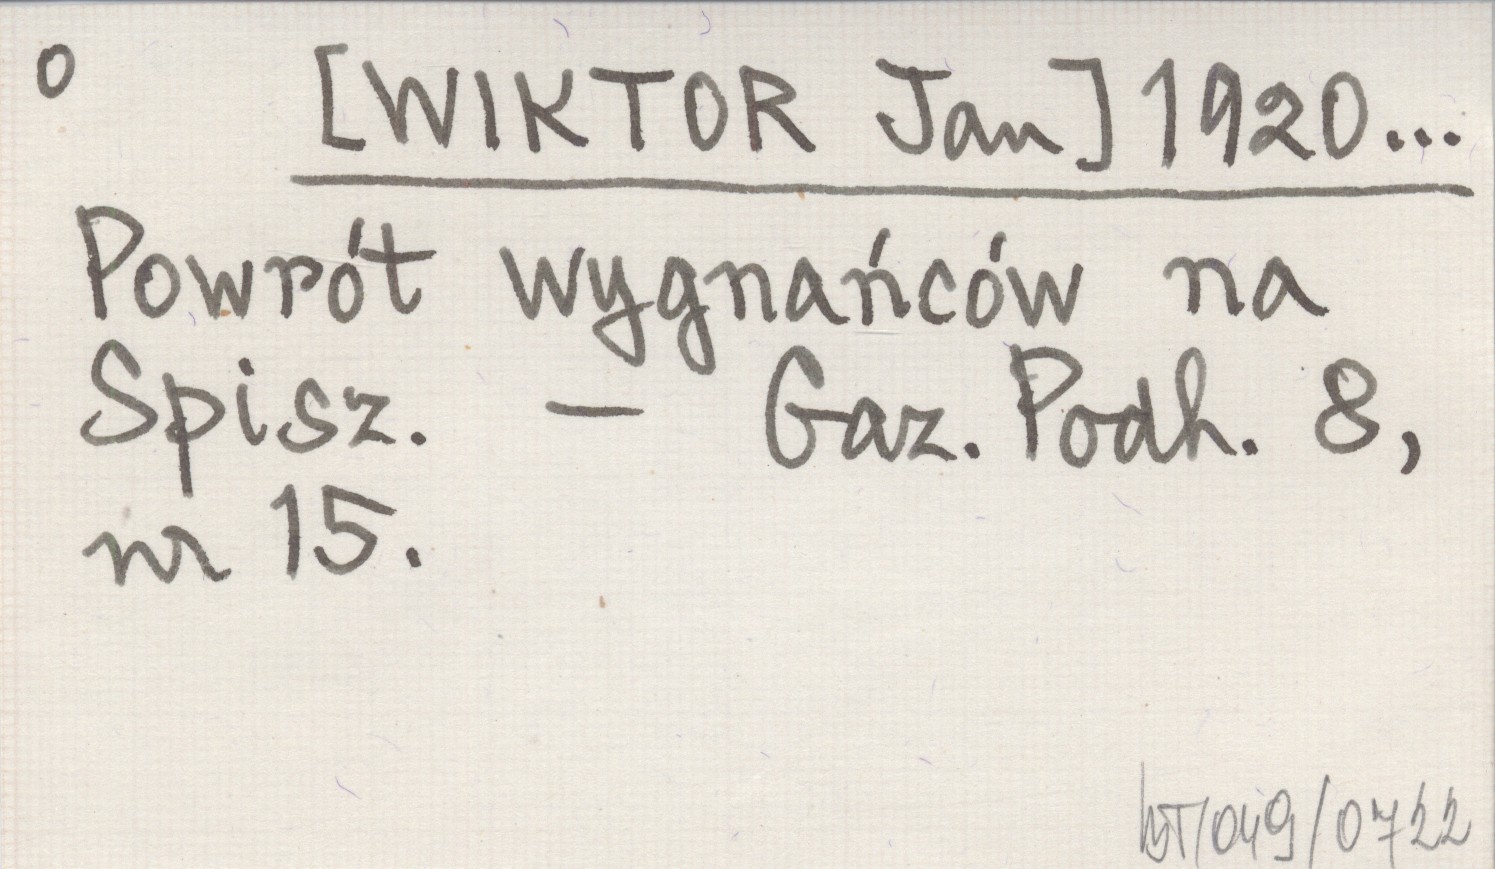 o [WIKTOR Jan] 1920...
Powrót wygnańców na
Spisz. — Gaz. Podh. 8,
nr 15.
/049/0722